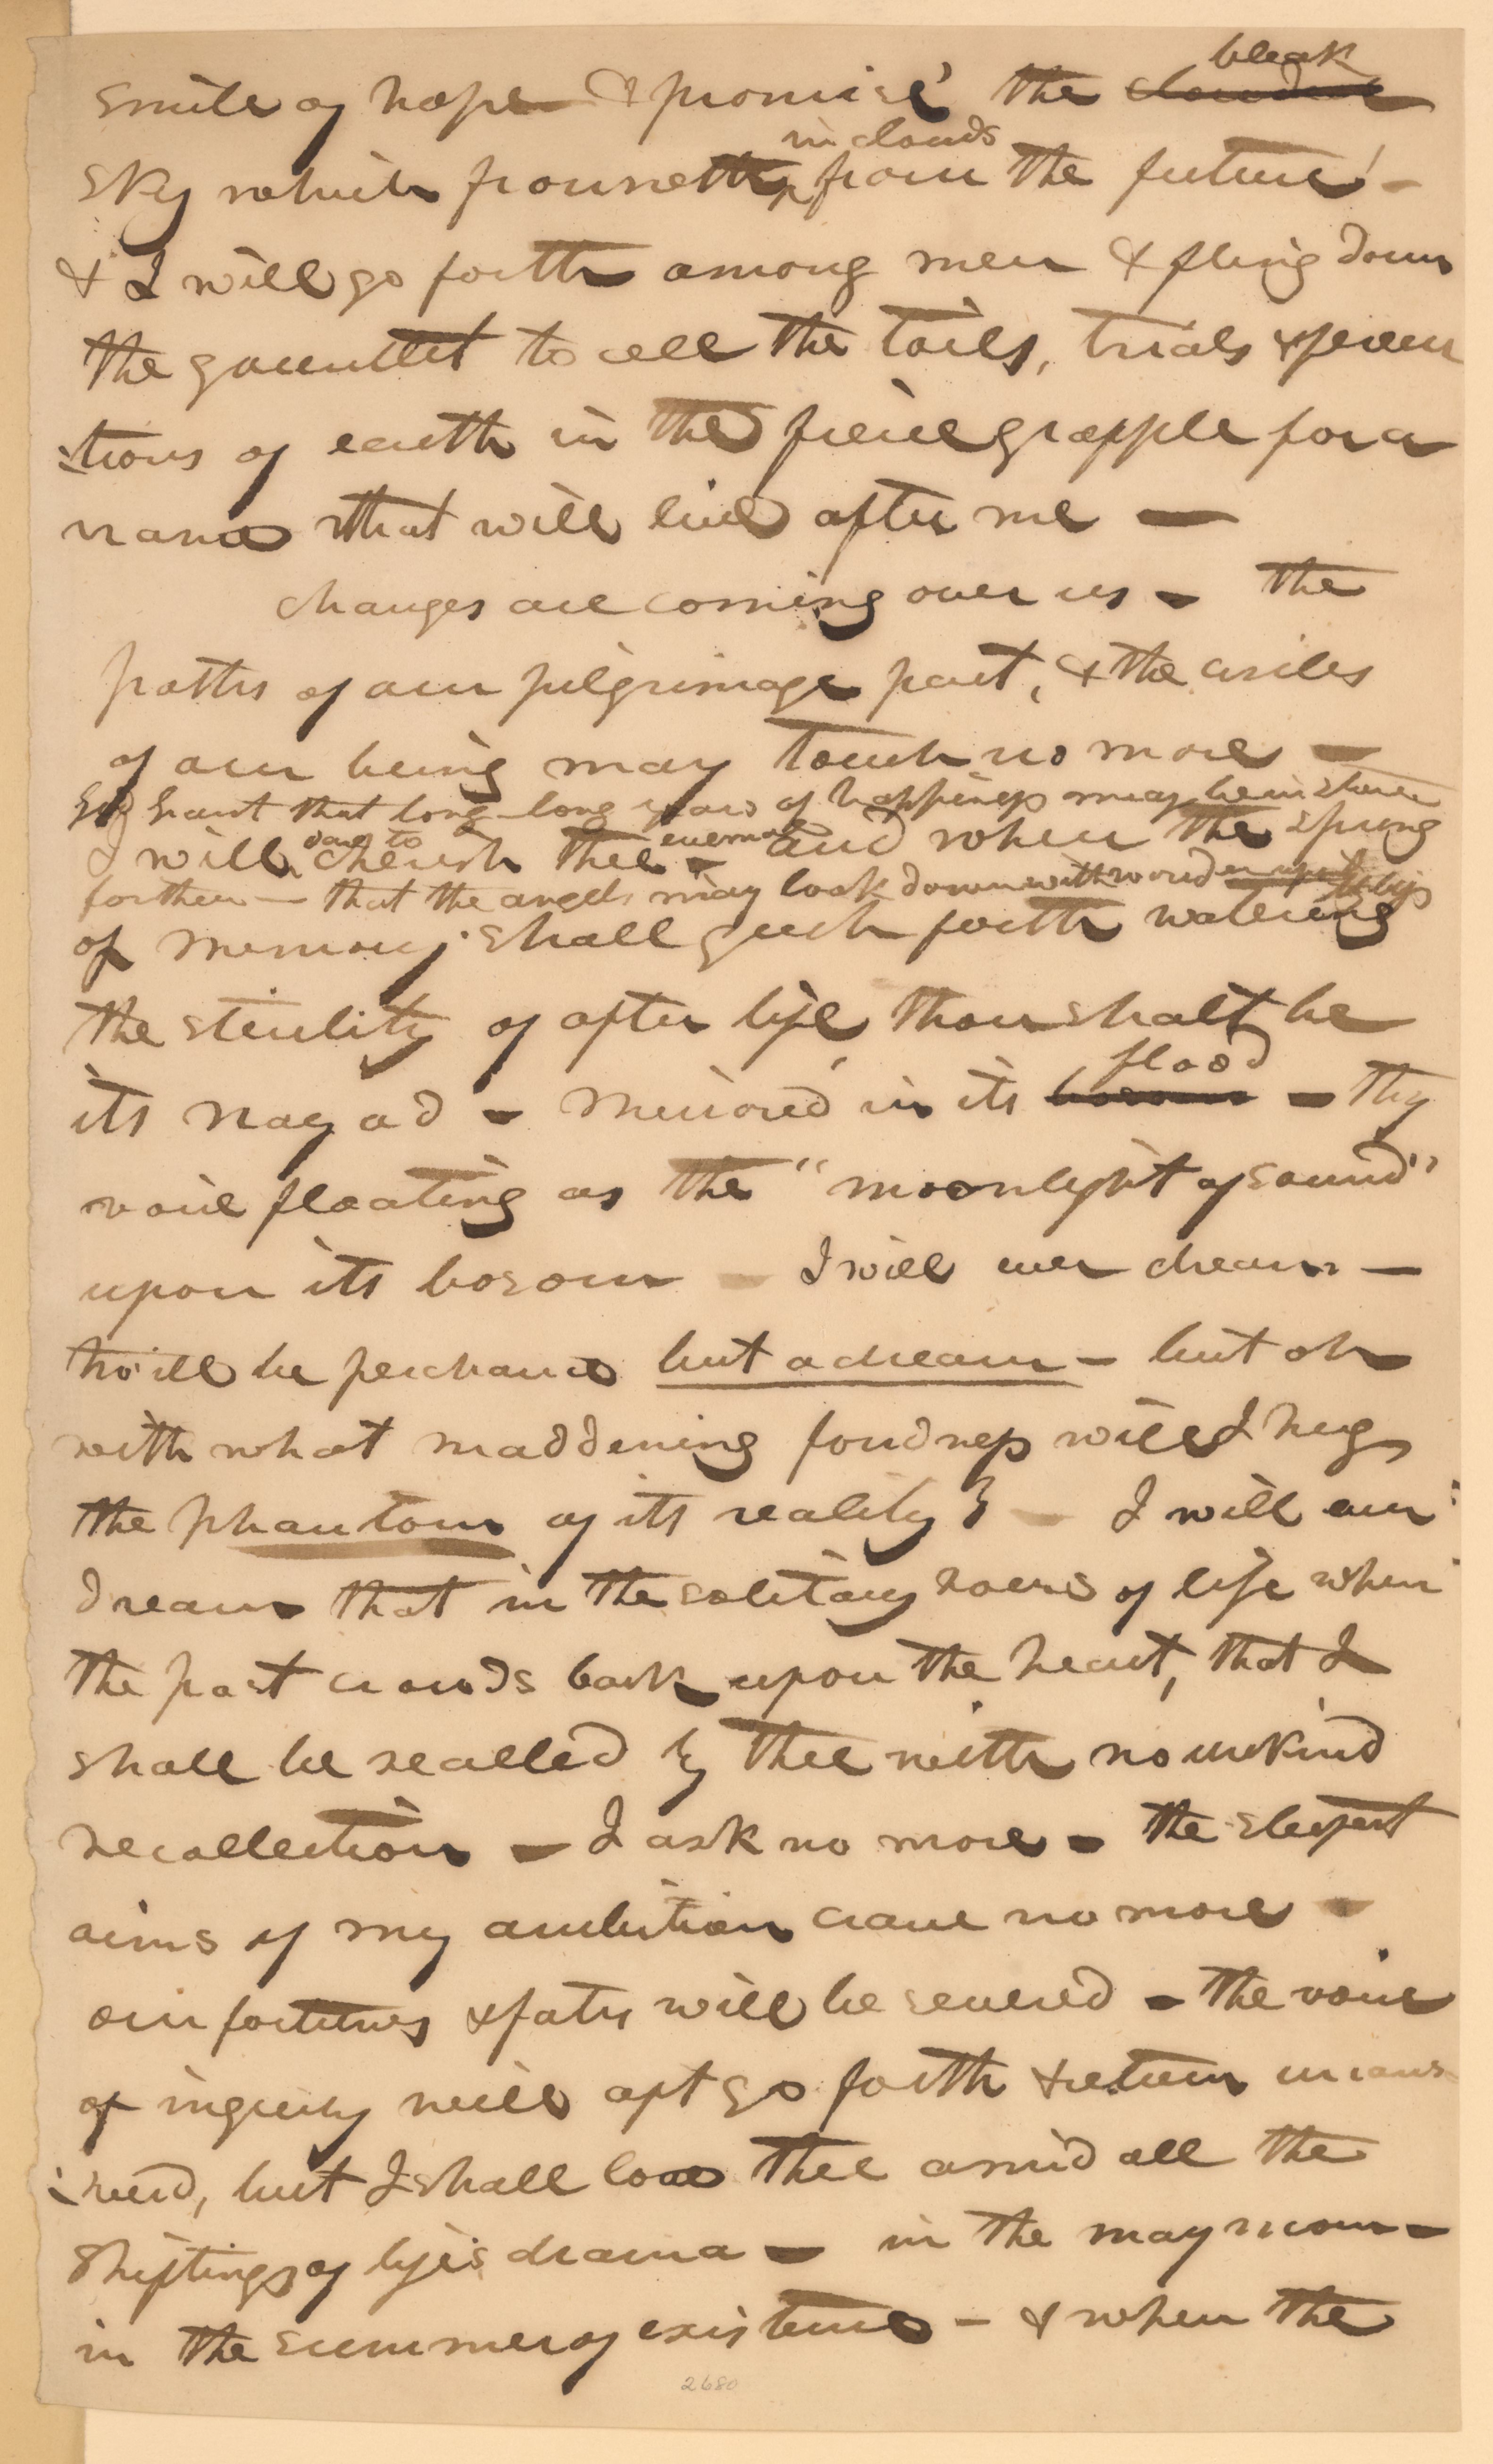 bleak
smile of hope & promise' the cloudless
in clouds
sky which frowneth from the future' -
& I will go forth among men & fling down
the gauntlet to all the toils, trials & persecu
:tions of earth in the fierce grapple for a
name that will live after me —
changes are coming over us - the
paths of our pilgrimage part, & the circles
of our being may touch no more —
God grant that long long years of happiness may be in store
dare to evermore
I will cherish thee - and when the spring
for thee — that the angels may look down with
of memory shall gush forth watering
the sterility of after life thou shalt be
flood
its nayad - mirrored in its bosom - thy
voice floating as the "moonlight of sound"
upon its bosom - I will ever dream —
twill be perchance but a dream - but oh
with what maddening fondness will I hug
the phantom of its reality! - I will ever
dream that in the solitary hours of life when
the past crowds back upon the heart, that I
shall be recalled by thee with no unkind
recollection - I ask no more - the
aims of my ambition crave no more -
our fortunes & fates will be severed - the voice
of inquiry will oft go forth & return unans
:wered, but I shall love thee amid all the
shiftings of life's drama - in the may morn -
in the summer of existence - & when the
2680